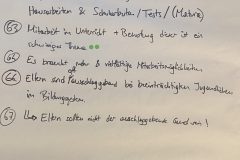 Hausarbeiten & Schularbeiten / Tests / (Matura)
63 Mitarbeit im Unterricht + Benotung dieser ist ein
schwieriges Thema
65 Es braucht mehr & vielfältige Mitarbeitsmöglichkeiten
66 Eltern sind oft bei beeinträchtigten Jugendlichen
im Bildungssystem.
67 Eltern sollen nicht der ausschlaggebende Grund sein!